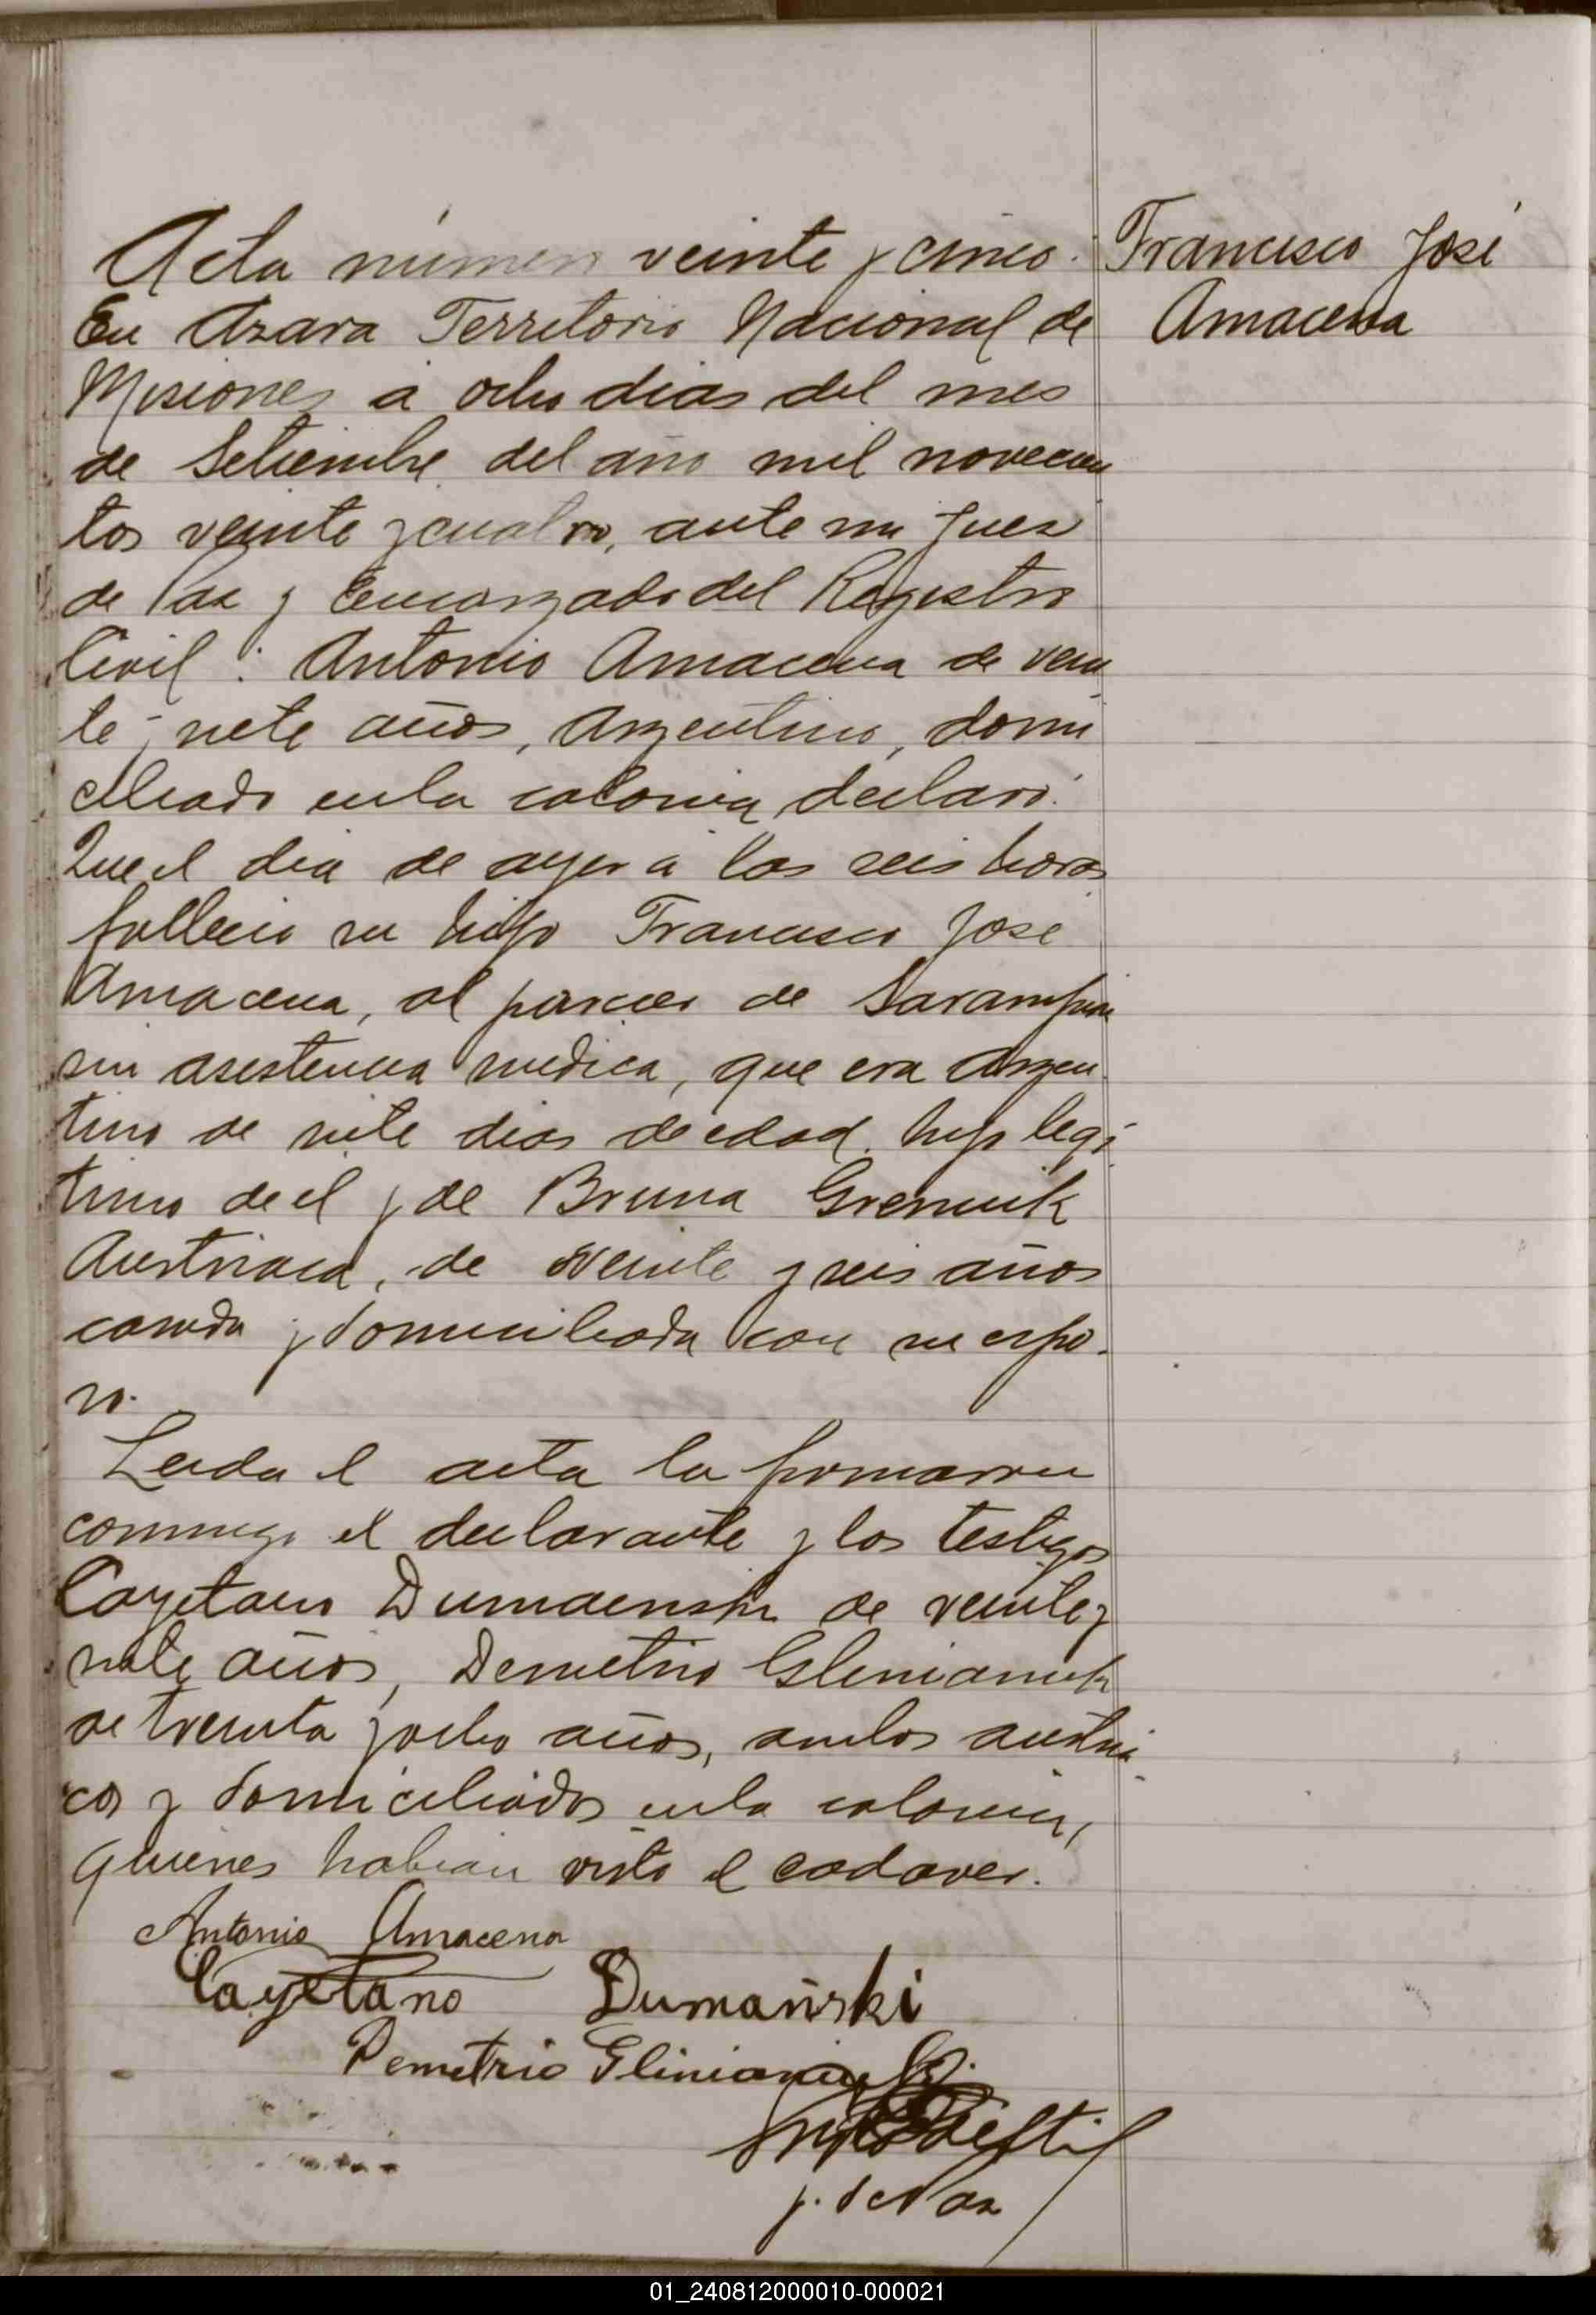 Acta número veinte y cinco.
Francisco José
Amacena
En Azara Territorio Nacional de
Misiones a ocho dias del mes
de Setiembre del año mil novecien
tos veinte y cuatro, ante mi Juez
de Paz y Encargado del Registro
Civil: Antonio Amacena de vein
te y siete años, Argentino, domi
ciliado en la colonia, declaró:
Que el dia de ayer a las seis horas
fallecio su hijo Francisco José
Amacena, al parecer de Sarampion
sin asistencia medica, que era Argen
tino de siete dias de edad, hijo legi
timo de el y de Bruna
Austriaca, de veinte y seis años
casada y domiciliada con su espo-
so.
Leida el acta la firmaron
conmigo el declarante y los testigos
Cayetano Dumaenski de veinte y
siete años, Demetrio Gleniamik
de treinta y ocho años, ambos austria
cos y domiciliados en la colonia,
quienes habian visto el cadaver.
Antonio Amacena
Cayetano Dumañski
Demetrio
J. de Paz
01_240812000010-000021